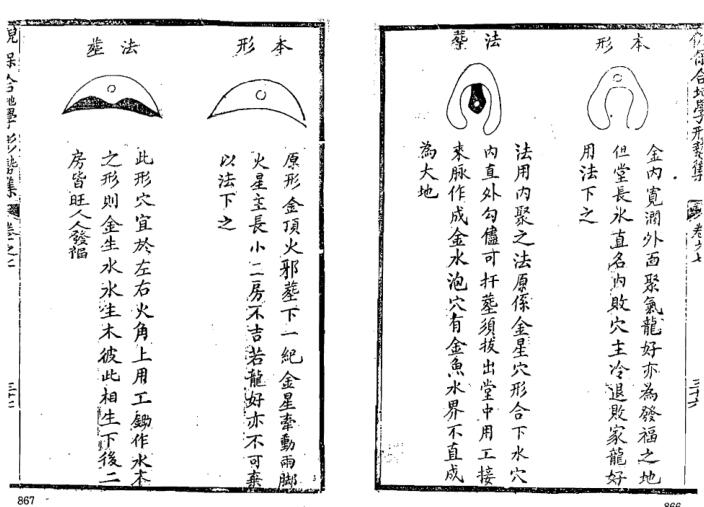 本形
金內寬濶外面聚氣龍好亦為發福之地
但堂長水直名內敗穴主冷退敗家龍好
用法下之
法葬
法用內聚之法原係金星穴形合下水穴
內直外勾儘可扦葬須拔出堂中用工接
來脉作成金水泡穴有金魚水界不直成
為大地
866
本形
原形金頂火邪葬下一紀金星牽動兩脚
火星主長小二房不吉若龍好亦不可棄
以法下之
法葬
此形穴宜於左右火角上用工鋤作水木
之形則金生水水生木彼此相生下後二
房皆旺人人發福
867